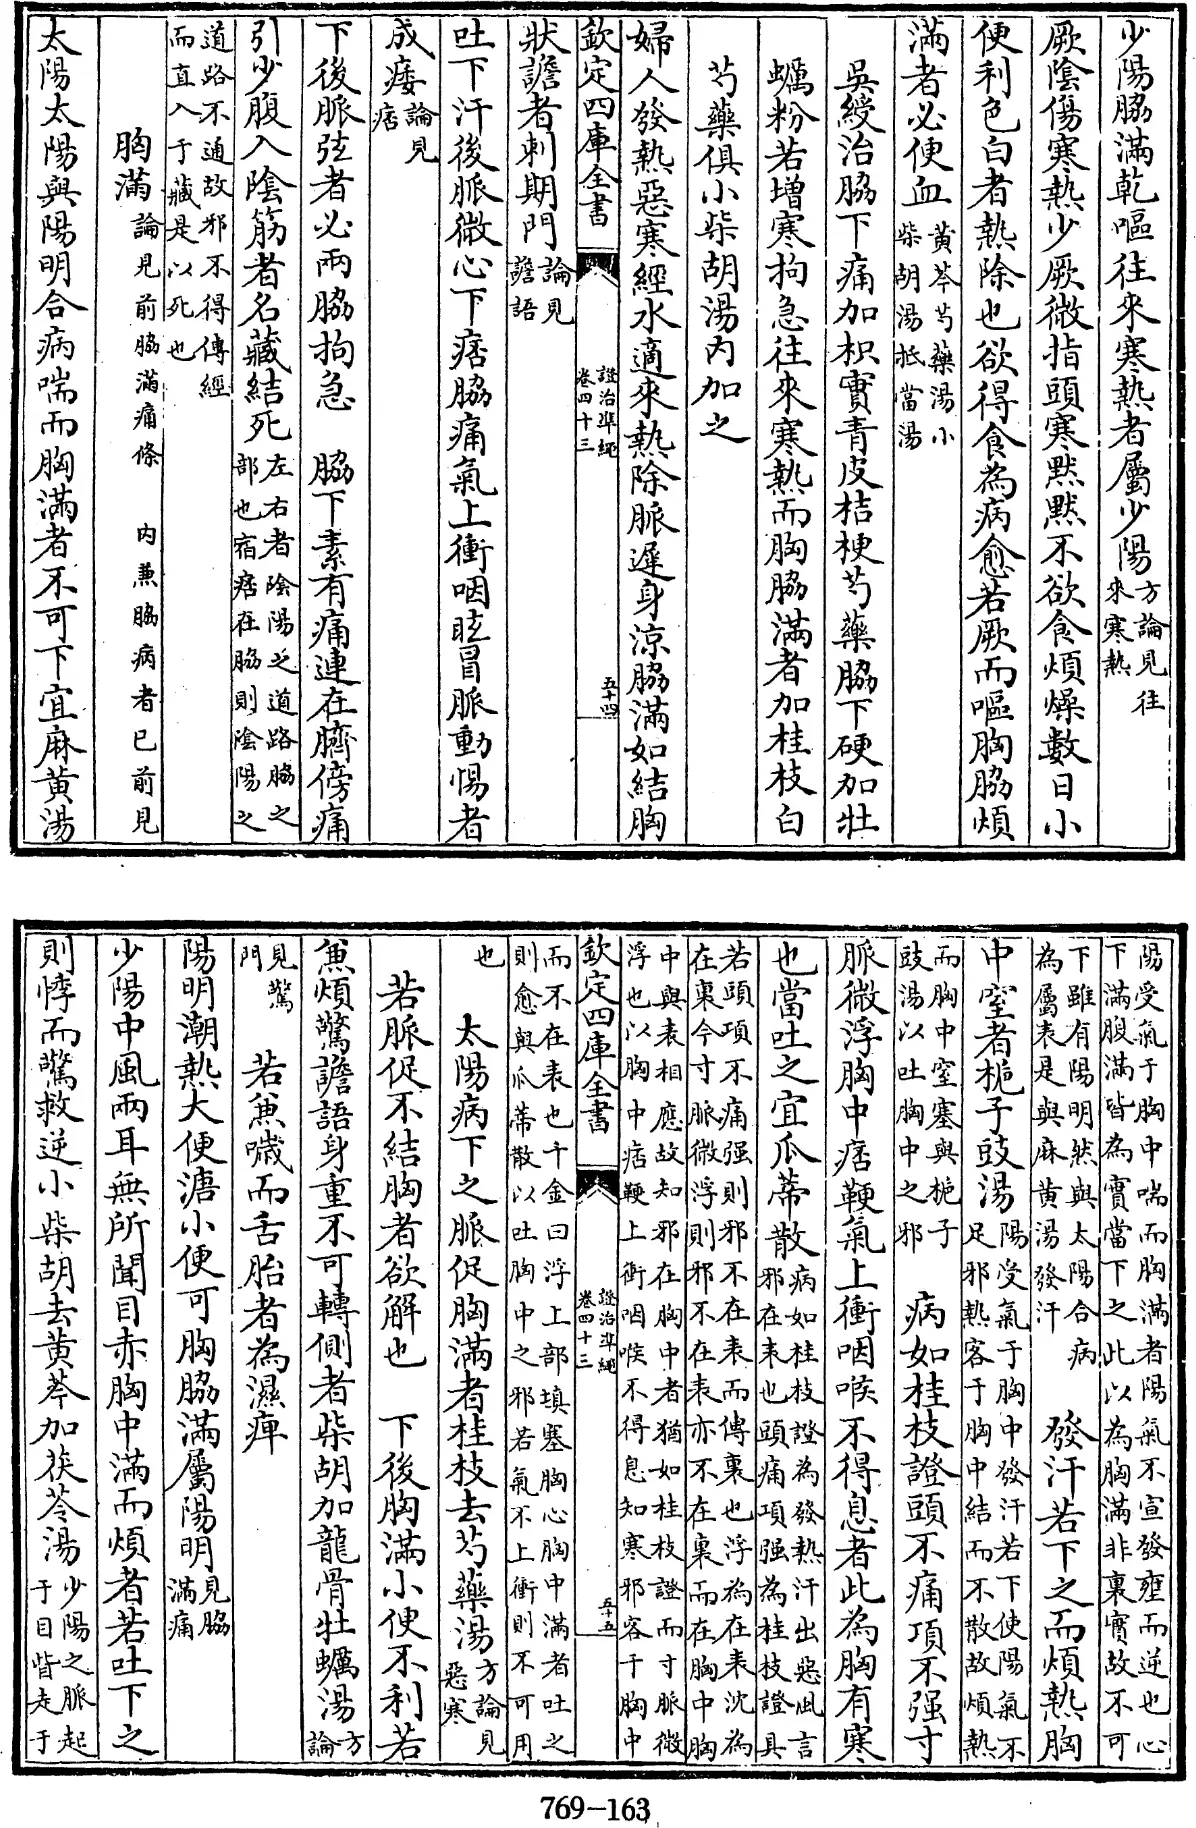 少陽脇滿乾嘔往來寒熱者屬少陽方論見往來寒熱
厥陰傷寒熱少厥微指頭寒默默不欲食煩燥數日小
便利色白者熱除也欲得食為病愈若厥而嘔胸脇煩
滿者必便血黄芩芍藥湯小柴胡湯抵當湯
吳綬治脇下痛加枳實青皮桔梗芍藥脇下硬加牡
蠣粉若增寒拘急往來寒熱而胸脇滿者加桂枝白
芍藥俱小柴胡湯內加之
婦人發熱惡寒經水適來熱除脈遲身涼脇滿如結胸
欽定四庫全書 證治準繩 卷四十三 五十四
狀譫者刺期門論見譫語
吐下汗後脈微心下痞脇痛氣上衝咽眩冒脈動惕者
成痿論見痞
下後脈弦者必兩脇拘急 脇下素有痛連在臍傍痛
引少腹入陰筋者名藏結死左右者陰陽之道路脇之部也宿痞在脇則陰陽之
道路不通故邪不得傳經而直入于藏是以死也
胸滿論見前脇滿痛條 内兼脇病者已前見
太陽太陽與陽明合病喘而胸滿者不可下宜麻黄湯
陽受氣于胸中喘而胸滿者陽氣不宣發壅而逆也心下滿腹滿皆為實當下之此以為胸滿非裏實故不可
下雖有陽明然與太陽合病為屬表是與麻黄湯發汗 發汗若下之而煩熱胸
中窒者梔子豉湯陽受氣于胸中發汗若下使陽氣不足邪熱客于胸中結而不散故煩熱
而胸中窒塞與梔子豉湯以吐胸中之邪 病如桂枝證頭不痛項不强寸
脈微浮胸中痞鞕氣上衝咽喉不得息者此為胸有寒
也當吐之宜瓜蒂散病如桂枝證為發熱汗出惡風言邪在表也頭痛項强為桂枝證具
若頭項不痛强則邪不在表而傳裏也浮為在表沈為在裏今寸脈微浮則邪不在表亦不在裏而在胸中胸
中與表相應故知邪在胸中者猶如桂枝證而寸脈微浮也以胸中痞鞕上衝咽喉不得息知寒邪客于胸中
欽定四庫全書 證治準繩 卷四十三 五十五
而不在表也千金曰浮上部填塞胸心胸中滿者吐之則愈與瓜蒂散以吐胸中之邪若氣不上衝則不可用
也 太陽病下之脈促胸滿者桂枝去芍藥湯方論見惡寒
若脈促不結胸者欲解也 下後胸滿小便不利若
兼煩驚譫語身重不可轉側者柴胡加龍骨牡蠣湯方論
見驚門 若兼噦而舌胎者為濕痺
陽明潮熱大便溏小便可胸脇滿屬陽明見脇滿痛
少陽中風兩耳無所聞目赤胸中滿而煩者若吐下之
則悸而驚救逆小柴胡去黄芩加茯苓湯少陽之脈起于目眥走于
769-163